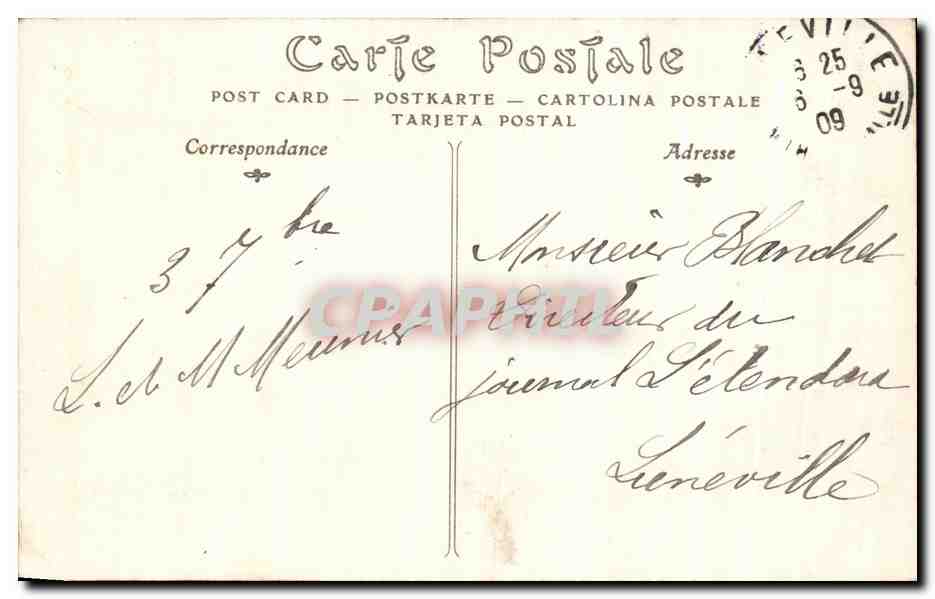 Carte Postale
POST CARD — POSTKARTE — CARTOLINA POSTALE
TARJETA POSTAL
EVILLE
6 25
6 -9
09
Correspondance
3 7bre
L. et M Meunier
Adresse
Monsieur Blanchet
Directeur du
journal L'étendard
Lunéville
CPAPHIL